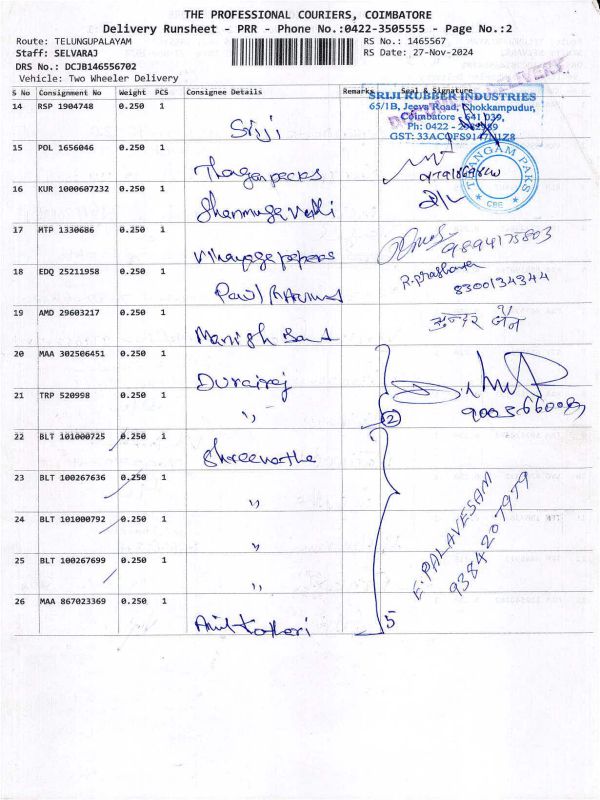 THE PROFESSIONAL COURIERS, COIMBATORE
Delivery Runsheet - PRR - Phone No.:0422-3505555 - Page No.:2
Route: TELUNGUPALAYAM RS No.: 1465567
Staff: SELVARAJ RS Date: 27-Nov-2024
DRS No.: DCJB146556702
Vehicle: Two Wheeler Delivery
S No Consignment No Weight PCS Consignee Details Remarks Seal & Signature
SRIJI RUBBER INDUSTRIES
65/1B, Jeeva Road, Chokkampudur,
Coimbatore - 641 039,
14 RSP 1904748 0.250 1 Sriji
15 POL 1656046 0.250 1
THANGAM PAKS
CBE
16 KUR 1000607232 0.250 1
17 MTP 1330686 0.250 1
9894175803
18 EDQ 25211958 0.250 1
R. Prashanna
8300134344
19 AMD 29603217 0.250 1 Manish
सुन्दर जैन
20 MAA 302506451 0.250 1 Durairaj
21 TRP 520998 0.250 1 "
2
22 BLT 101000725 0.250 1
23 BLT 100267636 0.250 1 "
24 BLT 101000792 0.250 1 "
25 BLT 100267699 0.250 1 "
E. PALAVESAM
9384207979
26 MAA 867023369 0.250 1 Anil Kothari
5